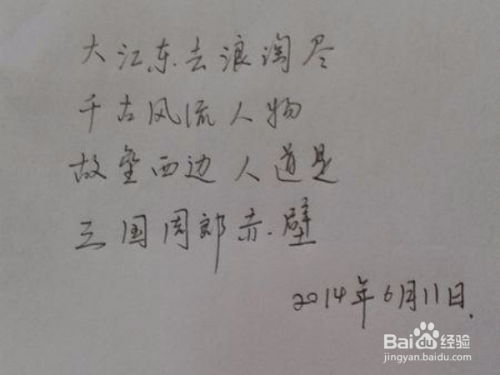 大江东去浪淘尽
千古风流人物
故垒西边人道是
三国周郎赤壁
2014年6月11日.
Baidu经验
jingyan.baidu.com